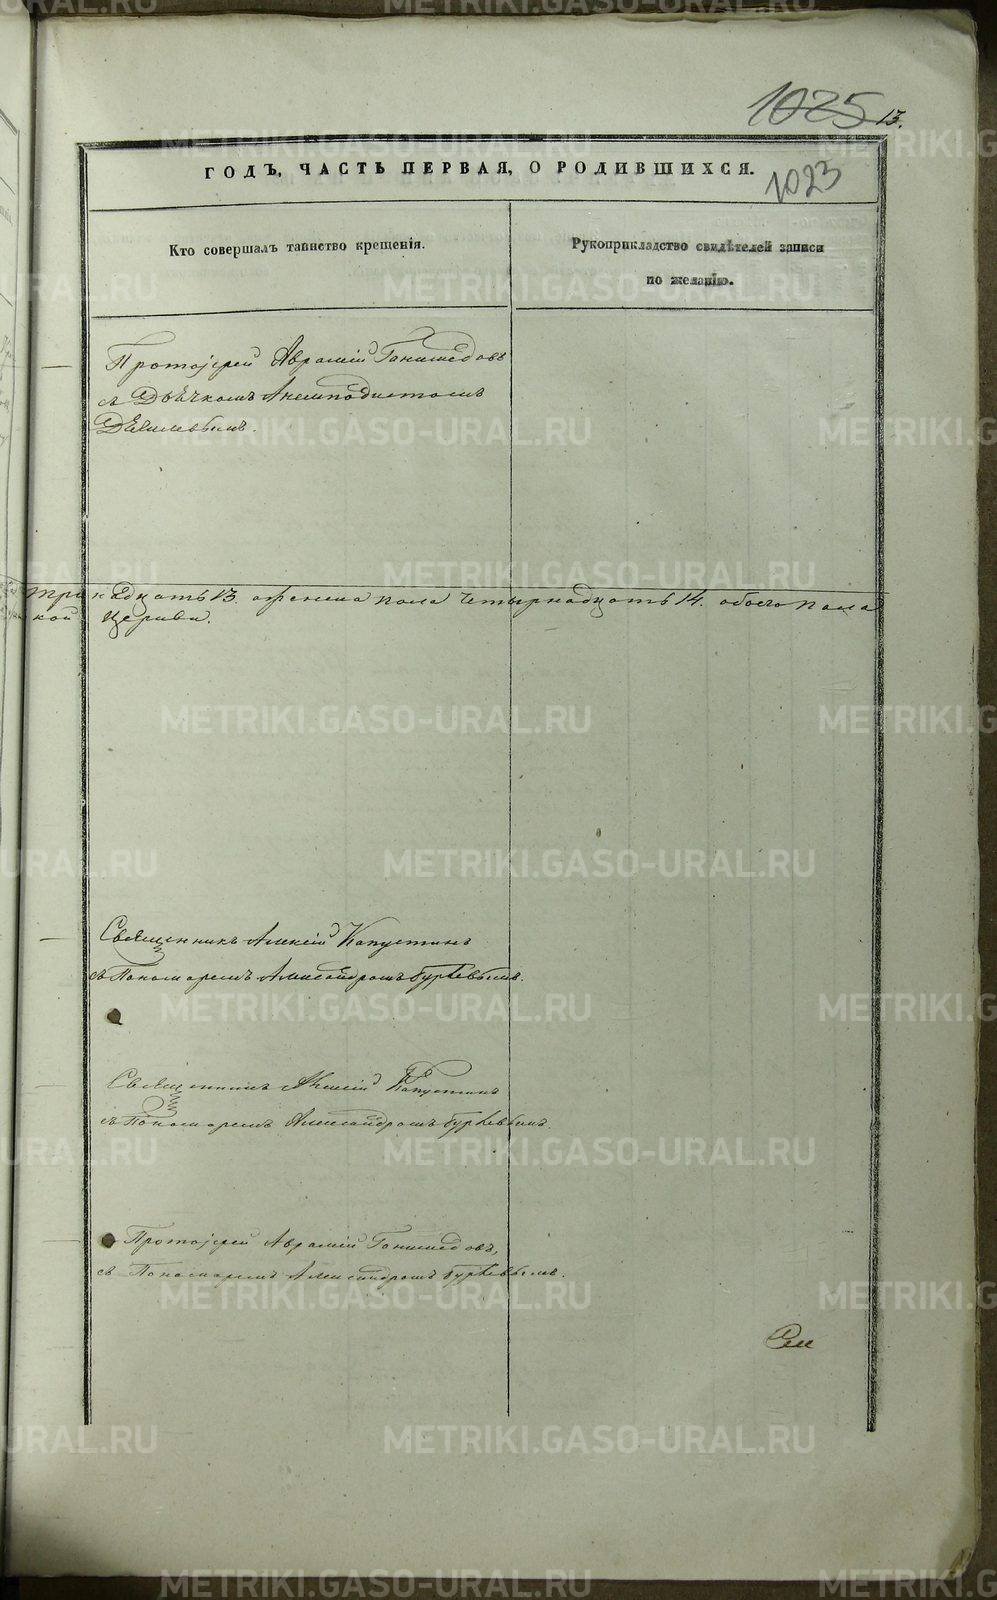 1025 13.
ГОДЪ, ЧАСТЬ ПЕРВАЯ, О РОДИВШИХСЯ.
1023
Кто совершалъ таинство крещенія.
Рукоприкладство свидѣтелей записи
по желанію.
Протоіерей Аврамій
съ Дьячкомъ Анемподистомъ
тринадцать 13. а женска пола четырнадцать 14. обоего пола
кой церкви.
Священникъ Алексій Капустинъ
съ Пономаремъ Александромъ
Священникъ Алексій Капустинъ
съ Пономаремъ Александромъ
Протоіерей Аврамій
съ Пономаремъ Александромъ
METRIKI.GASO-URAL.RU